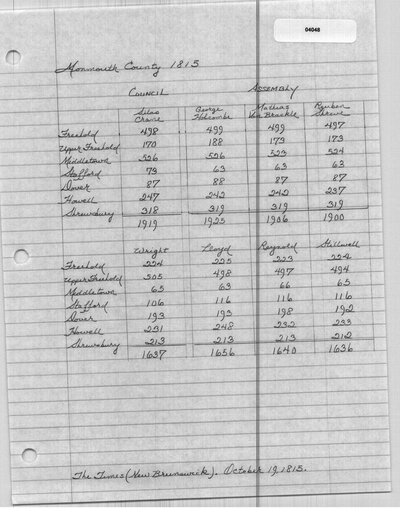 04048
Monmouth County 1815
Council Assembly
Silas George Mathias Reuben
Crane Holcombe Van Brackle Shreve
Freehold 498 499 499 497
Upper Freehold 170 188 173 173
Middletown 526 526 523 524
Stafford 73 63 63 63
Dover 87 88 87 87
Howell 247 242 242 237
Shrewsbury 318 319 319 319
1919 1925 1906 1900
Wright Lloyd Reynolds Stillwell
Freehold 224 225 223 224
Upper Freehold 505 498 497 494
Middletown 65 63 66 65
Stafford 106 116 116 116
Dover 193 193 198 192
Howell 231 248 232 233
Shrewsbury 213 213 213 212
1637 1656 1640 1636
The Times (New Brunswick). October 19, 1815.